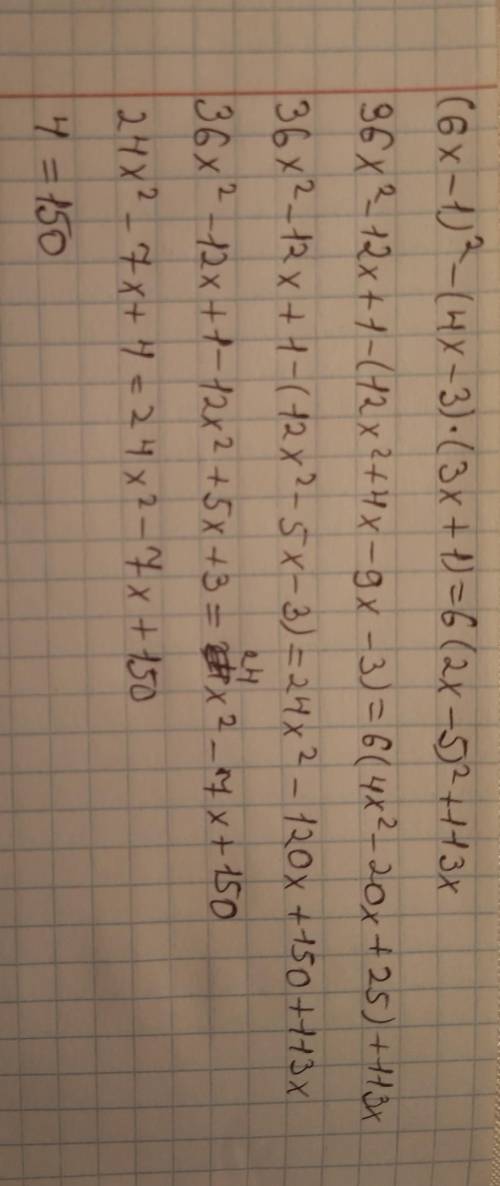 (6x-1)² - (4x-3)·(3x+1) = 6(2x-5)² + 113x
36x² - 12x + 1 - (12x² + 4x - 9x - 3) = 6(4x² - 20x + 25) + 113x
36x² - 12x + 1 - (12x² - 5x - 3) = 24x² - 120x + 150 + 113x
36x² - 12x + 1 - 12x² + 5x + 3 = 24x² - 7x + 150
24x² - 7x + 4 = 24x² - 7x + 150
4 = 150